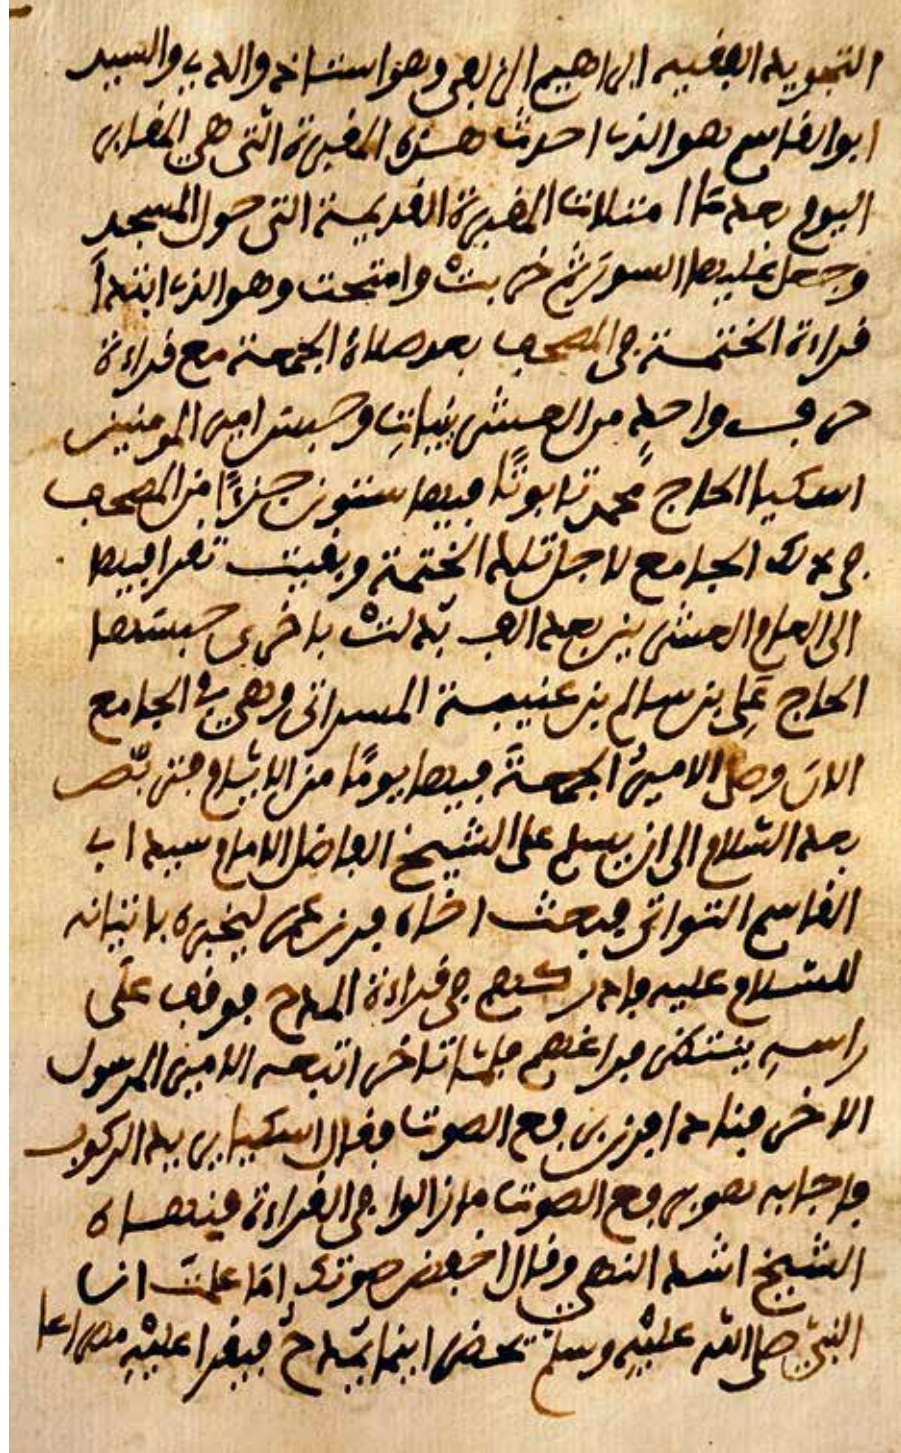 التجويد الفقيه ابراهيم الزلفى وهو استاذ والدى والسيد
ابو القاسم هو الذى احدث هذه المقبرة التى هي المقابر
اليوم بعد مَا امتلات المقبرة القديمة التى حول المسجد
وجعل عليها السور ثم خربتْ وامتحت وهو الذى ابتدأ
قراءة الختمة في المصحف بعد صلاة الجمعة مع قراءة
حرف واحدٍ من العشرينياتِ وحبس امير المومنين
اسكيا الحاج محمد تابوتًا فيها ستون جزءًا من المصحف
في ذلك الجامع لاجل تلك الختمة وبقيت تقرا فيها
الى العام العشرين بعد الف بدلتْ باخرى حبستها
الحاج عَلِى بن سالم بن عنيبة المسراتى وهي في الجامع
الان وصلى الاميرُ الجمعةَ فيها يومًا من الايام فتربّص
بعد السّلام الى ان يسلم على الشيخ الفاضل الامام سيد اب
القاسم التواتى فبعث اخاه فرن عمر ليخبره باتيانه
للسّلام عليه فادركهم في قراءة المدح فوقف علَى
راسهِ ينتظر فراغهم فلمّا تاخر اتبعه الامير المرسول
الاخر فنادى افرن برفع الصوت فقال اسكيا يريد الركوب
فاجابه هو برفع الصوت ما زالوا في القراءة فنهاه
الشيخ اشد النهي وقال اخفض صوتك امَا علمتَ ان
النبيّ صلى الله عليْهِ وسلمَ يحضر اينما يمّدحُ فيقرا عليْهِ مصراعا